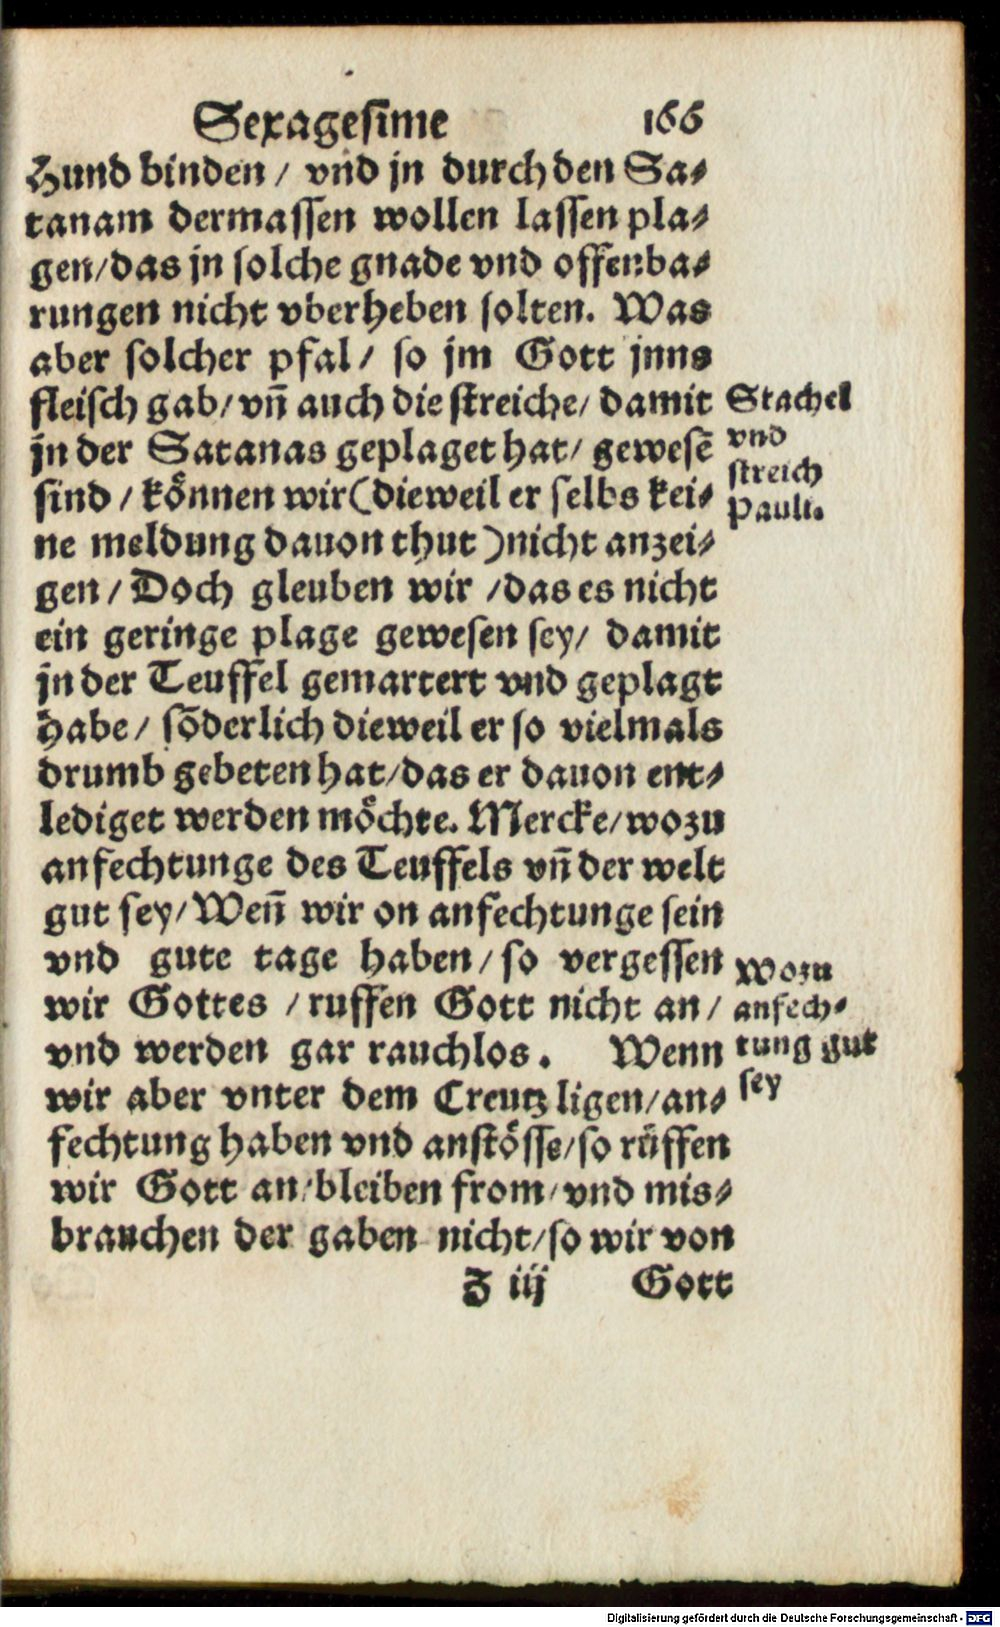 Sexagesime 166
Hund binden / vnd jn durch den Sa⸗
tanam dermassen wollen lassen pla⸗
gen/das jn solche gnade vnd offenba⸗
rungen nicht vberheben solten. Was
aber solcher pfal/ so jm Gott jnns
fleisch gab/vñ auch die streiche/ damit
jn der Satanas geplaget hat/ gewesẽ
sind / können wir (dieweil er selbs kei⸗
ne meldung dauon thut )nicht anzei⸗
gen / Doch gleuben wir /das es nicht
ein geringe plage gewesen sey/ damit
jn der Teuffel gemartert vnd geplagt
habe/ sõderlich dieweil er so vielmals
drumb gebeten hat/das er dauon ent⸗
lediget werden möchte. Mercke/wozu
anfechtunge des Teuffels vñ der welt
gut sey/Weñ wir on anfechtunge sein
vnd gute tage haben/so vergessen
wir Gottes /ruffen Gott nicht an/
vnd werden gar rauchlos. Wenn
wir aber vnter dem Creutz ligen/an⸗
fechtung haben vnd anstösse/so rüffen
wir Gott an/bleiben from/vnd mis⸗
brauchen der gaben nicht/so wir von
Z iij Gott
Stachel
vnd
streich
Pauli.
Wozu
anfech⸗
tung gut
sey
Digitalisierung gefördert durch die Deutsche Forschungsgemeinschaft - DFG